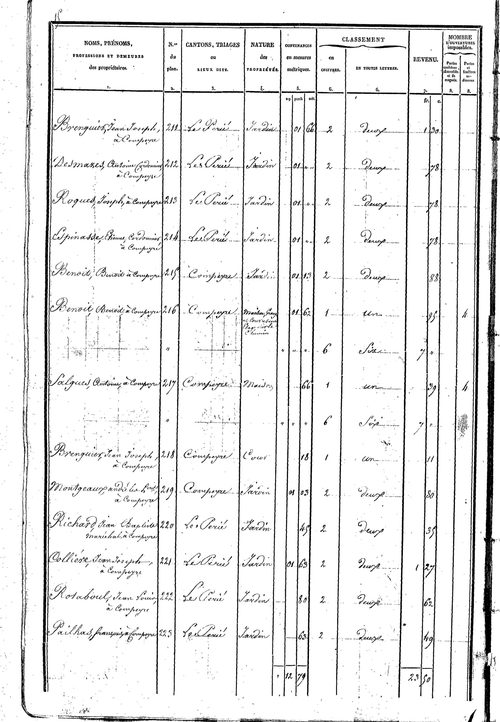 NOMS, PRÉNOMS, PROFESSIONS ET DEMEURES des propriétaires. N.os du plan. CANTONS, TRIAGES ou LIEUX DITS. NATURE des PROPRIÉTÉS. CONTENANCES en mesures métriques. CLASSEMENT en chiffres. EN TOUTES LETTRES. REVENU. NOMBRE D'OUVERTURES imposables.
1. 2. 3. 4. 5. 6. 6. 7. 8. 8.
Brenguier, Jean Joseph, à Compeyre 211 Le Périé Jardin 01 66 2 deux 1 30
Desmazes, Antoine Cordonnier à Compeyre 212 Le Périé Jardin 01 " 2 deux 78
Roques, Joseph, à Compeyre 213 Le Périé Jardin 01 " 2 deux 78
Espinasse, Etienne, Cordonnier à Compeyre 214 Le Périé Jardin 01 " 2 deux 78
Benoit, Benoit à Compeyre 215 Compeyre Jardin 01 13 2 deux 88
Benoit, Benoit à Compeyre 216 Compeyre 01 62 1 un 95 4
" " " " " 6 Six 7 "
Salgues, Antoine, à Compeyre 217 Compeyre Maison 66 1 un 39 4
" " " 6 Six 7 "
Brenguier, Jean Joseph, à Compeyre 218 Compeyre Cour 18 1 un 11
Montgeaux à Compeyre 219 Compeyre Jardin 01 03 2 deux 80
Richard, Jean Baptiste maréchal à Compeyre 220 Le Périé Jardin 45 2 deux 35
Collière, Jean Joseph, à Compeyre 221 Le Périé Jardin 01 63 2 deux 1 27
Rotaboul, Jean Louis, à Compeyre 222 Le Périé Jardin 80 2 deux 62
Pailhas, François, à Compeyre 223 Le Périé Jardin 63 2 deux 49
" 12 79 23 50